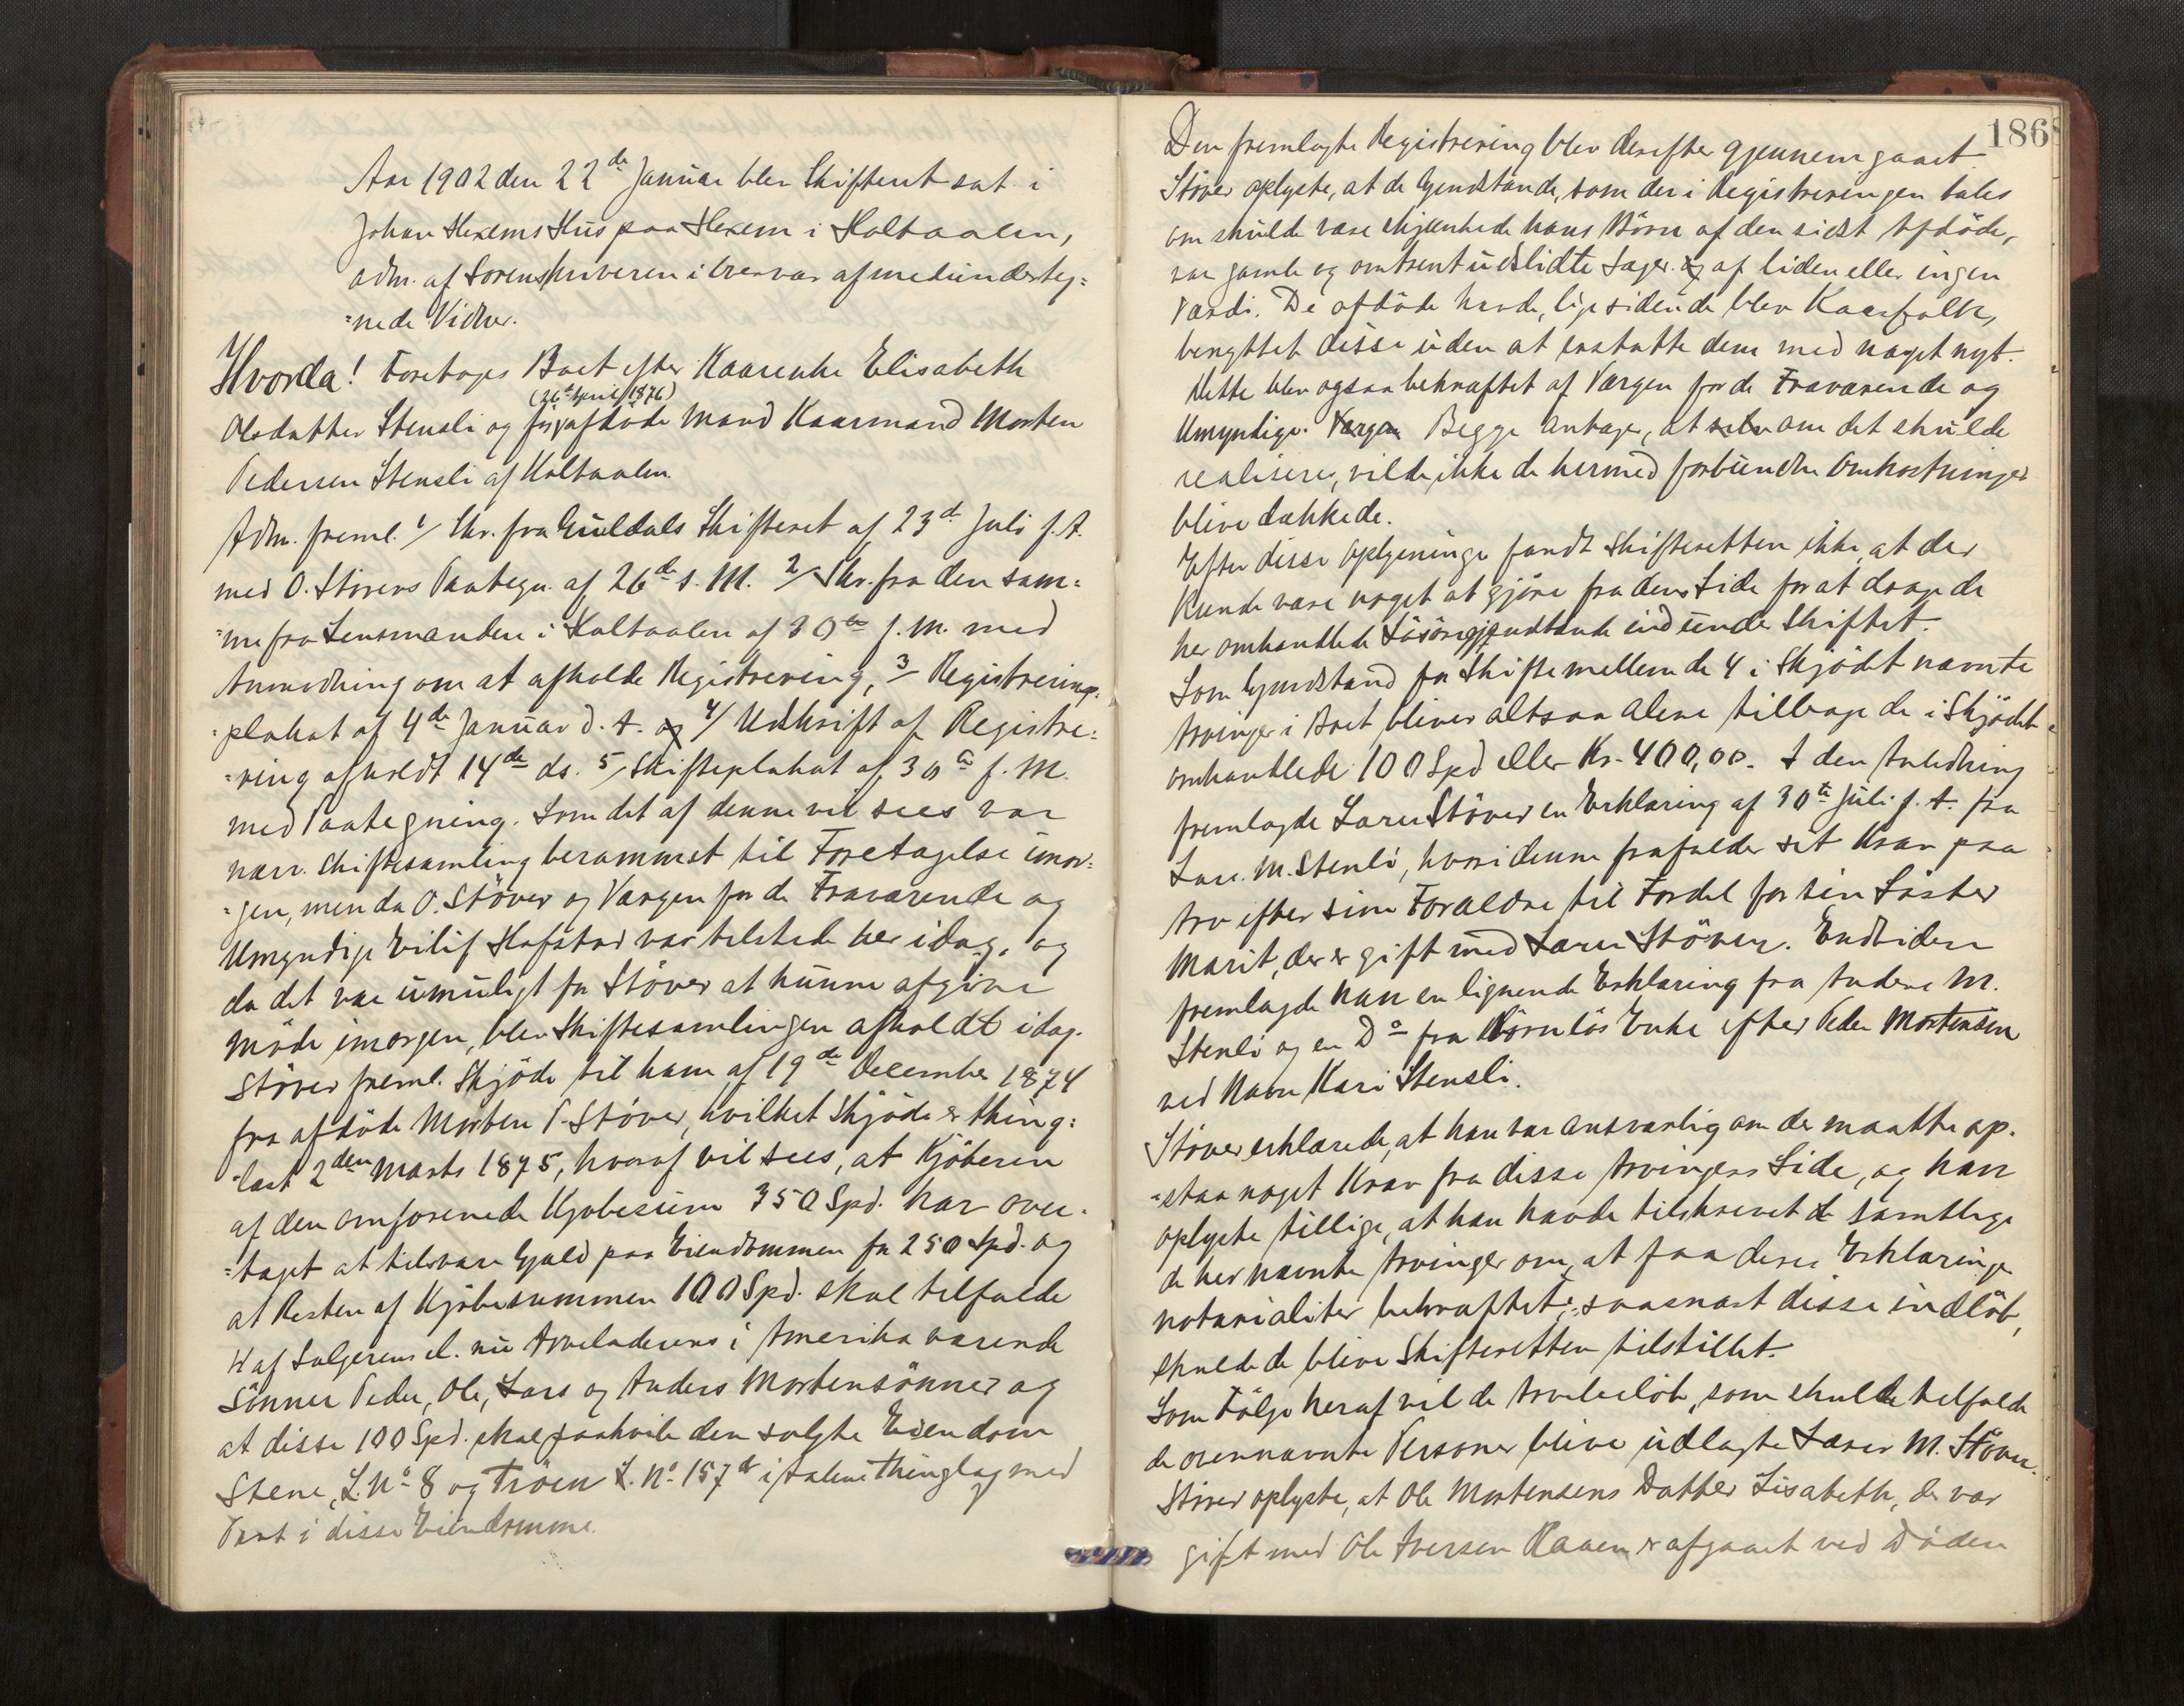 Aar 1902 den 22de Januar blev Skifteret sat i
Johan Hexems Hus paa Hexem i Holtaalen,
adm. af Sorenskriveren i Overvær af medunderteg=
=nede Vidner.
Hvorda! Foretages Boet efter Kaarenke Elisabeth
(26de April 1876)
Olsdatter Stensli og før afdøde Mand Kaarmand Morten
Pedersen Stensli af Holtaalen.
Adm. freml. 1/ Skr. fra Guldals Skifteret af 23de Juli f. A.
med O. Støvers Paategn. af 26de s. M. 2/ Skr. fra den sam=
=me fra Lensmanden i Holtaalen af 30te f. M. med
Anmodning om at afholde Registrering, 3/ Registrerings=
=plakat af 4de Januar d. A. og 4/ Udskrift af Registre=
=ring afholdt 14de ds. 5/ Skifteplakat af 30te f. M.
med Paategning. Som det af denne vil sees var
nærv. Skiftesamling berammet til Foretagelse imor=
=gen, men da O. Støver og Værgen for de Fraværende og
Umyndige Eilif Hofstad var tilstede her idag, og
da det var umuligt for Støver at kunne afgive
Møde imorgen, blev Skiftesamlingen afholdt idag.
Støver freml. Skjøde til ham af 19de December 1874
fra afdøde Morten P. Støver, hvilket Skjøde er thing=
=læst 2den Marts 1875, hvoraf vil sees, at Kjøberen
af den omforenede Kjøbesum 350 Spd. har over=
=taget at tilsvare Gjæld paa Eiendommen for 250 Spd. og
at Resten af Kjøbesummen 100 Spd. skal tilfalde
4 af Sælgerens el. nu Arveladerens i Amerika værende
Sønner Peder, Ole, Lars og Anders Mortensønner og
at disse 100 Spd. skal paahvile den solgte Eiendom
Stene, L. No 8 og Trøen L. No 157 d i Aalens Thinglag med
Pant i disse Eiendomme.
186
Den fremlagte Registrering blev derefter gjennemgaaet
Støver oplyste, at de Gjenstande, som der i Registreringen tales
om skulde være skjænkede hans Børn af den sidst Afdøde,
var gamle og omtrent udslidte Sager og af liden eller ingen
Værdi. De afdøde havde, lige siden de blev Kaarfolk,
benyttet disse uden at erstatte dem med noget nyt.
Dette blev ogsaa bekræftet af Værgen for de Fraværende og
Umyndige. Værgen Begge antager, at selv om det skulde
realiseres, vilde ikke de hermed forbundne Omkostninger
blive dækkede.
Efter disse Oplysninger fandt Skifteretten ikke, at der
kunde være noget at gjøre fra dens Side for at drage de
her omhandlede Løsøregjenstande ind under Skiftet.
Som Gjenstand for Skifte mellem de 4 i Skjødet nævnte
Arvinger i Boet bliver altsaa alene tilbage de i Skjødet
omhandlede 100 Spd eller Kr. 400,00. I den Anledning
fremlagde Lars Støver en Erklæring af 30te Juli f. A. fra
Lars M. Stenli, hvori denne frafalder sit Krav paa
Arv efter sine Forældre til Fordel for sin Søster
Marit, der er gift med Lars Støver. Endvidere
fremlagde han en lignende Erklæring fra Anders M.
Stenli og en Do fra Børnløs Enke efter Peder Mortensen
ved Navn Kari Stensli.
Støver erklærede, at han var ansvarlig om der maatte op=
=staa noget Krav fra disse Arvingers Side, og han
oplyste tillige, at han havde tilskrevet de samtlige
de her nævnte Arvinger om, at faa deres Erklæringer
notarialiter bekræftet; saasnart disse indløb,
skulde de blive Skifteretten tilstillet.
Som Følge heraf vil de Arvebeløb, som skulde tilfalde
de ovennævnte Personer blive udlagte Lars M. Støver.
Støver oplyste, at Ole Mortensens Datter Lisabeth, der var
gift med Ole Iversen Kaaen er afgaaet ved Døden